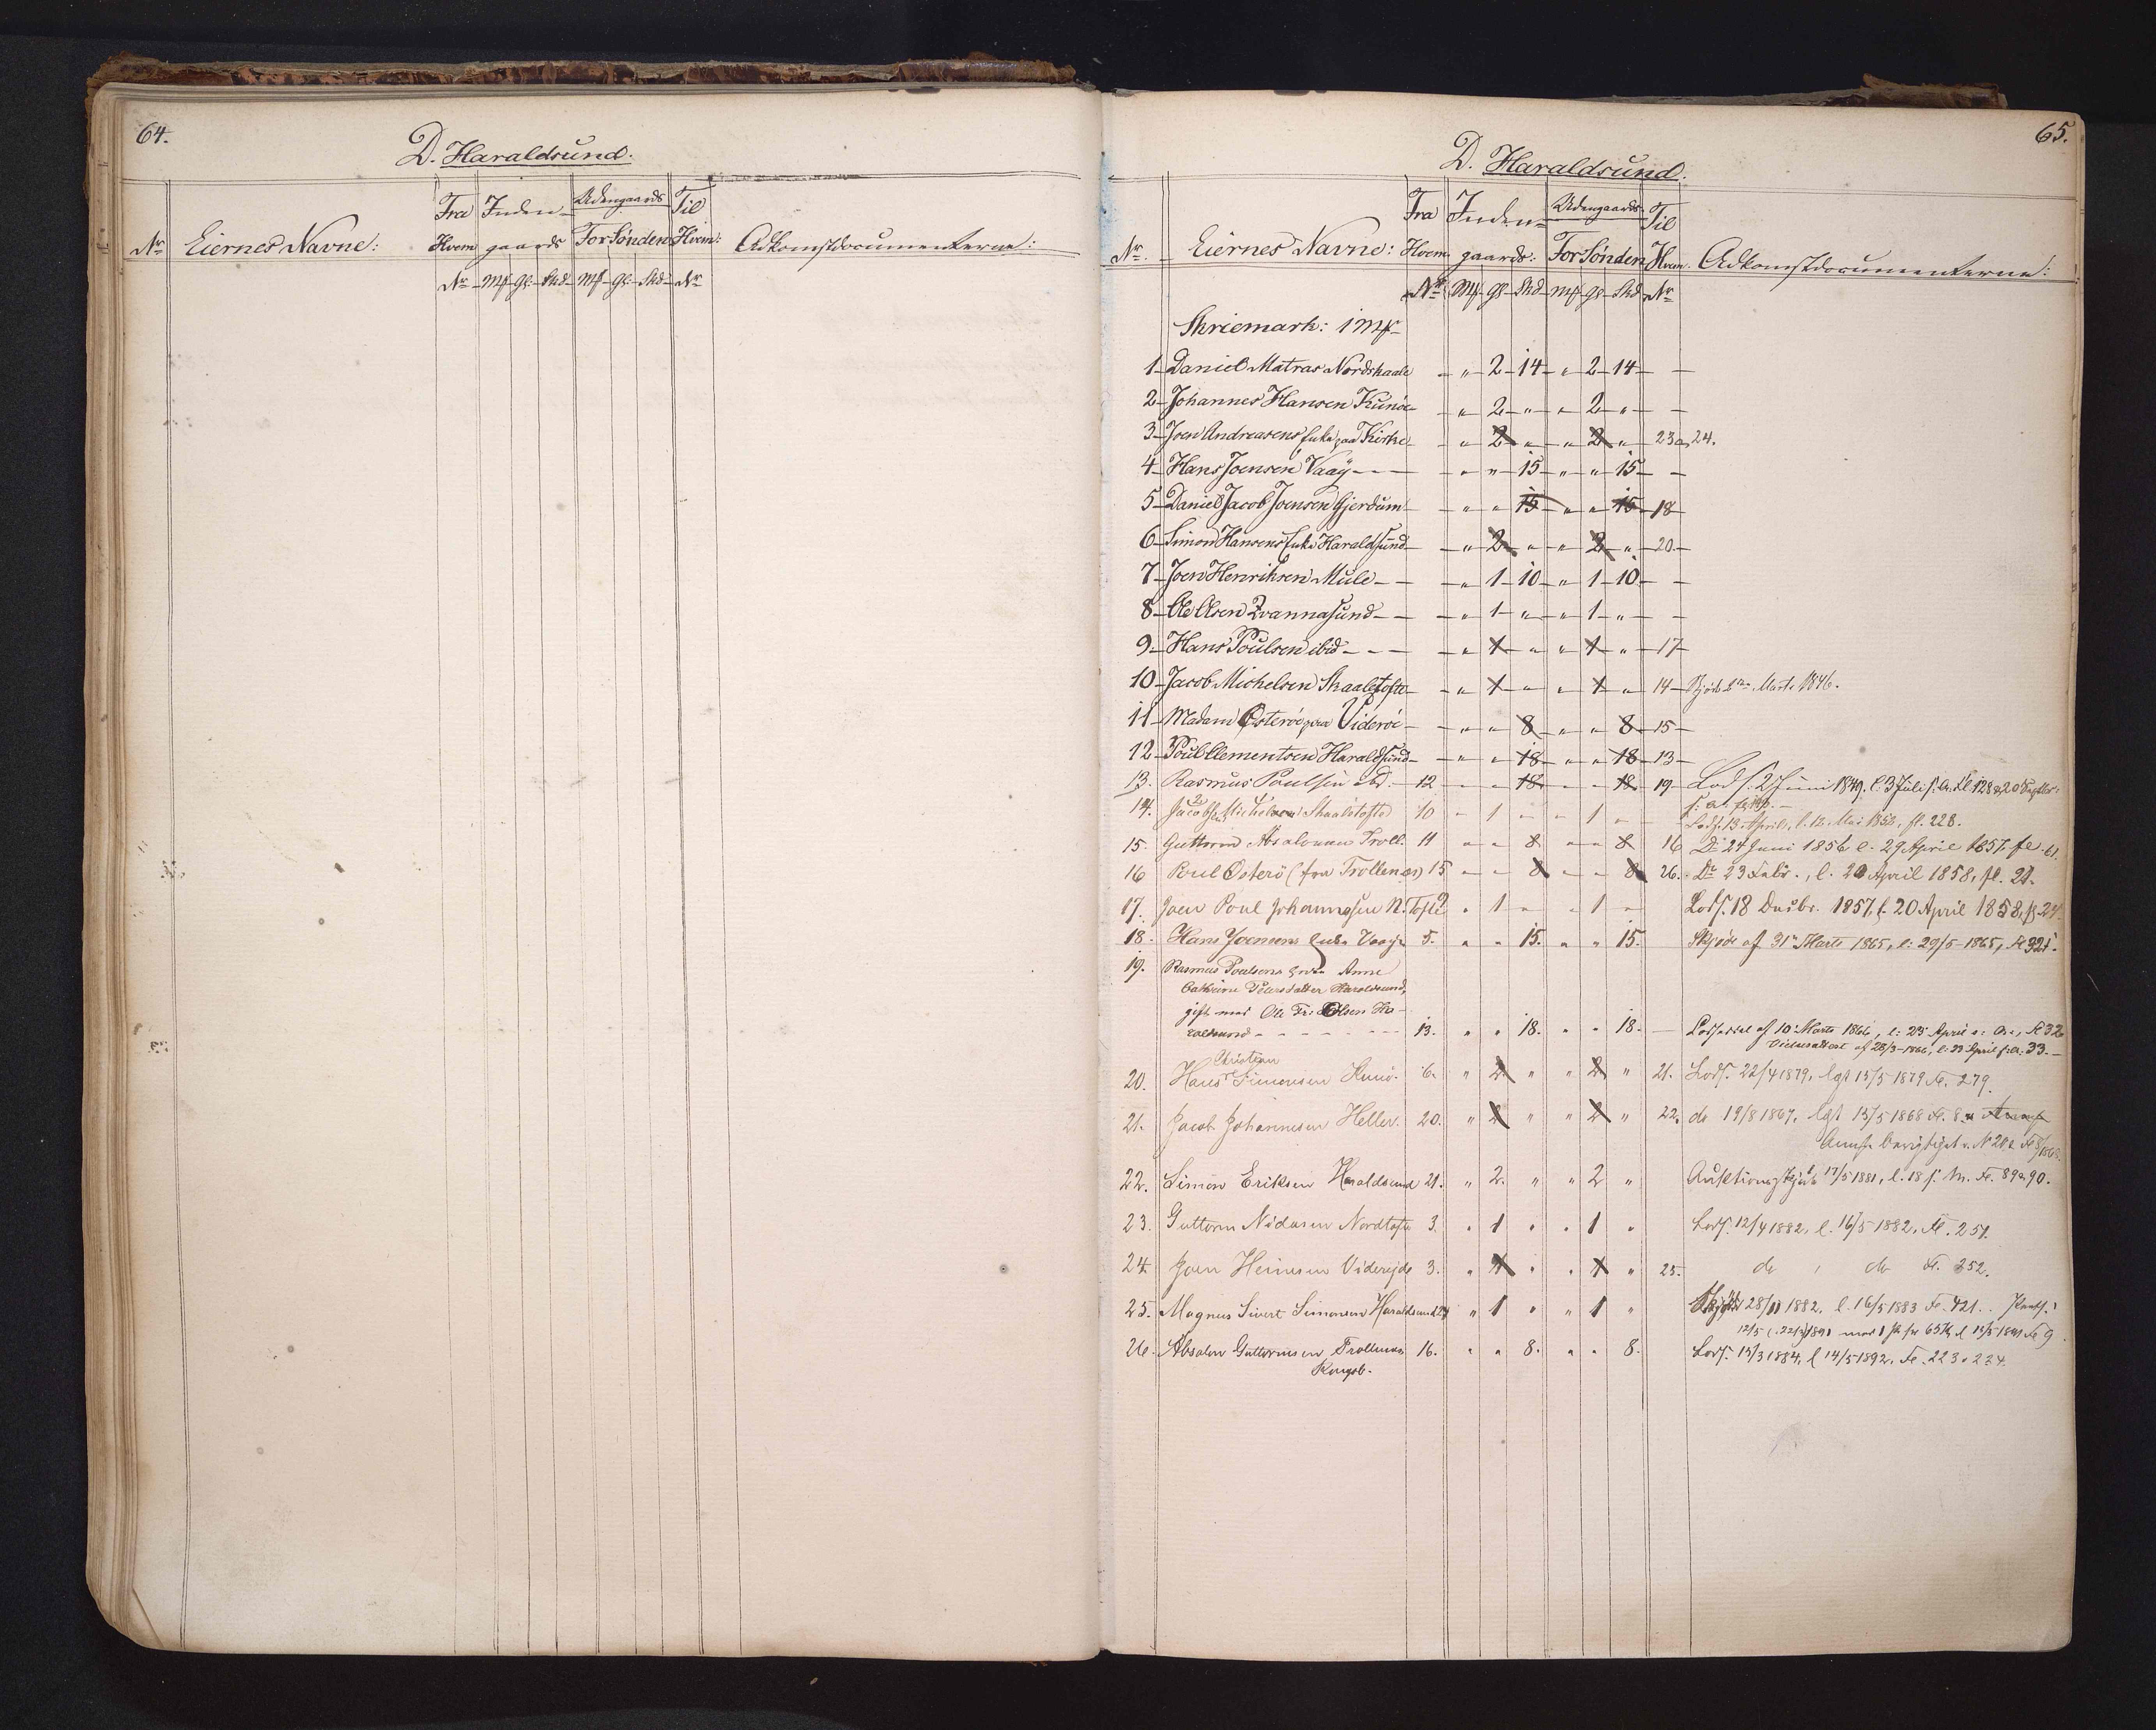 64.
D. Haraldsund.
Nr. Eiernes Navne: Fra Hvem Inden- gaards Udengaards For Sønden Til Hvem: Adkomstdocumenterne:
Nr Mk Gl. Skd Mk Gl. Skd Nr
65.
D. Haraldsund.
Nr. Eiernes Navne: Fra Hvem Inden- gaards: Udengaards For Sønden Til Hvem. Adkomstdocumenterne:
Nr Mk Gl Skd Mk Gl Skd Nr
Skriemark: 1 Mk
1 Daniel Matras Nordskaale " 2 14 " 2 14
2 Johannes Hansen Kunøe " 2 " " 2 "
3 Joen Andreasens Enke paa Kirke " 2 " " 2 " 23 a 24.
4 Hans Joensen Vaag " " 15 " " 15
5 Daniel Jacob Joensen Gjerdum " " 15 " " 15 18
6 Simon Hansens Enke Haraldsund " 2 " " 2 " 20
7 Joen Henriksen Mule " 1 10 " 1 10
8 Ole Olsen Qvannasund " 1 " " 1 "
9 Hans Poulsen ibid " 1 " " 1 " 17
10 Jacob Michelsen Skaaletofte " 1 " " 1 " 14 Skjøde 2den Marts 1846.
11 Madam Østerøe paa Viderøe " " 8 " " 8 15
12 Poul Clementsen Haraldsund " " 18 " " 18 13
13. Rasmus Poulsen ibd. 12 " " 18 " " 18 19 Lods. 2 Juni 1849. l. 3 Juli s. A. fl 128
14. Jacob Michelsen Skaaletofte 10 " 1 " " 1 "
Lods. 13 April, l. 12 Mai 1853, fl. 228.
15. Guttorm Absalonsen Troll. 11 " " 8 " " 8 16 Do 24 Juni 1856 l. 29 April 1857 fl 61
16 Poul Østerø (fra Trollenæs) 15 " " 8 " " 8 26. Do 23 Febr., l. 20 April 1858, fl. 21.
17. Joen Poul Johannesen N. Tofte 9 " 1 " " 1 " Lods. 18 Decbr. 1857, l. 20 April 1858, fl 24
18. Hans Joensens Enke Vaag 5. " " 15. " " 15. Skjøde af 31 Marts 1865, l: 29/5 1865, fl 325.
19. Rasmus Poulsens Enke Anne
Cathrine Pedersdatter Haraldsund,
gift med Ole Fr: Olsen Ha-
raldsund 13. " " 18. " " 18. Lodseddel af 10 Marts 1866, l: 23 April s. A., fl 32
Vielsesattest af 28/3-1866, l: 23 April s. A. 33.
Christian
20. Hans Simonsen Kunø. 6. " 2 " " 2 " 21. Lods. 22/4 1879, lgt 13/5 1879 Fl. 279.
21. Jacob Johannesen Heller. 20. " 2 " " 2 " 22. do 19/8 1867, lgt 13/5 1868 Fl. 8
22. Simon Eriksen Haraldsund 21. " 2. " " 2 " Auktionsskjøde 17/5 1881, l. 18 s. M. Fl. 89 a 90.
23. Guttorm Nidasen Nordtofte 3. " 1 " " 1 " Lods. 12/4 1882, l. 16/5 1882, Fl. 251.
24. Joen Heinesen Viderejde 3. " 1 " " 1 " 25. do , do Fl. 252.
25. Magnus Sivert Simonsen Haraldsund 24 " 1 " " 1 " Skjøde 28/11 1882. l. 16/5 1883 Fl. 421.
26. Absalon Guttormsen Trollenæs 16. " " 8. " " 8. Lods. 15/3 1884, l 14/5 1892. Fl. 223 a 224.
Kongsb.